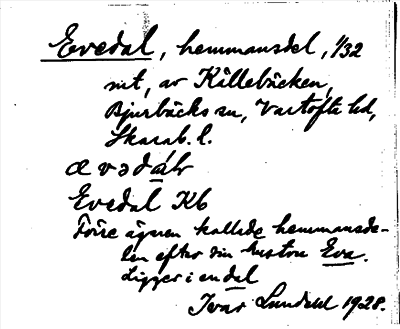 Evedal, hemmansdel, 1/32
mt, av Källebäcken,
Bjurbäcks sn, Vartofta hd,
Skarab. l.
Evedal Kb
Förre ägaren kallade hemmansde-
len efter sin hustru Eva.
Ligger i en dal
Ivar Lundahl 1928.